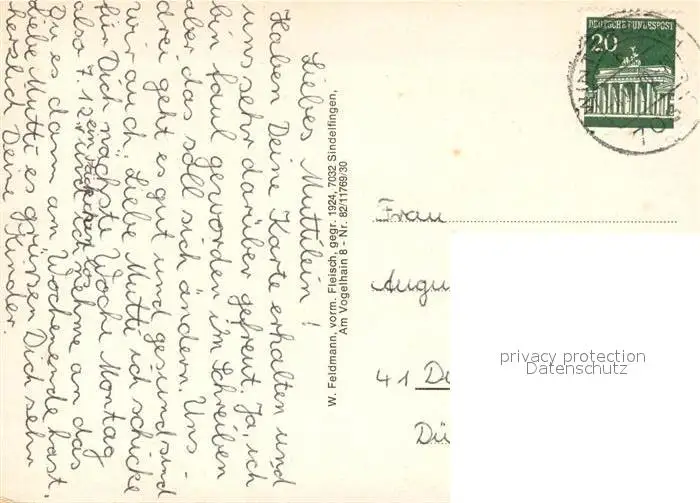 Liebes Muttilein!
Haben Deine Karte erhalten und
uns sehr darüber gefreut. Ja, ich
bin faul geworden im Schreiben
aber das soll sich ändern. Uns
drei geht es gut und gesund sind
wir auch. Liebe Mutti ich schicke
für Dich nächste Woche Montag
also 7.12 ein Päckchen los
und nehme an das
Du es dann am Wochenende hast.
Liebe Mutti es grüssen Dich sehr
herzlich Deine Kinder.
W. Feldmann, vorm. Fleisch, gegr. 1924, 7032 Sindelfingen,
Am Vogelhain 8 - Nr. 82/11769/30
DEUTSCHE BUNDESPOST
20
Frau
Augu
41 D
Dü
privacy protection
Datenschutz